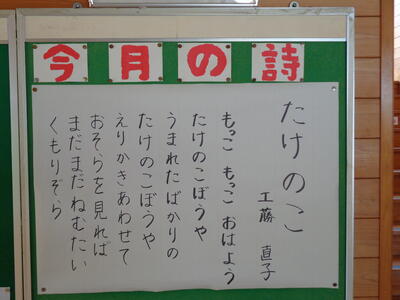 今月の詩
たけのこ
工藤 直子
もっこ もっこ おはよう
たけのこぼうや
うまれたばかりの
たけのこぼうや
えりかきあわせて
おそらを見れば
まだまだねむたい
くもりぞら